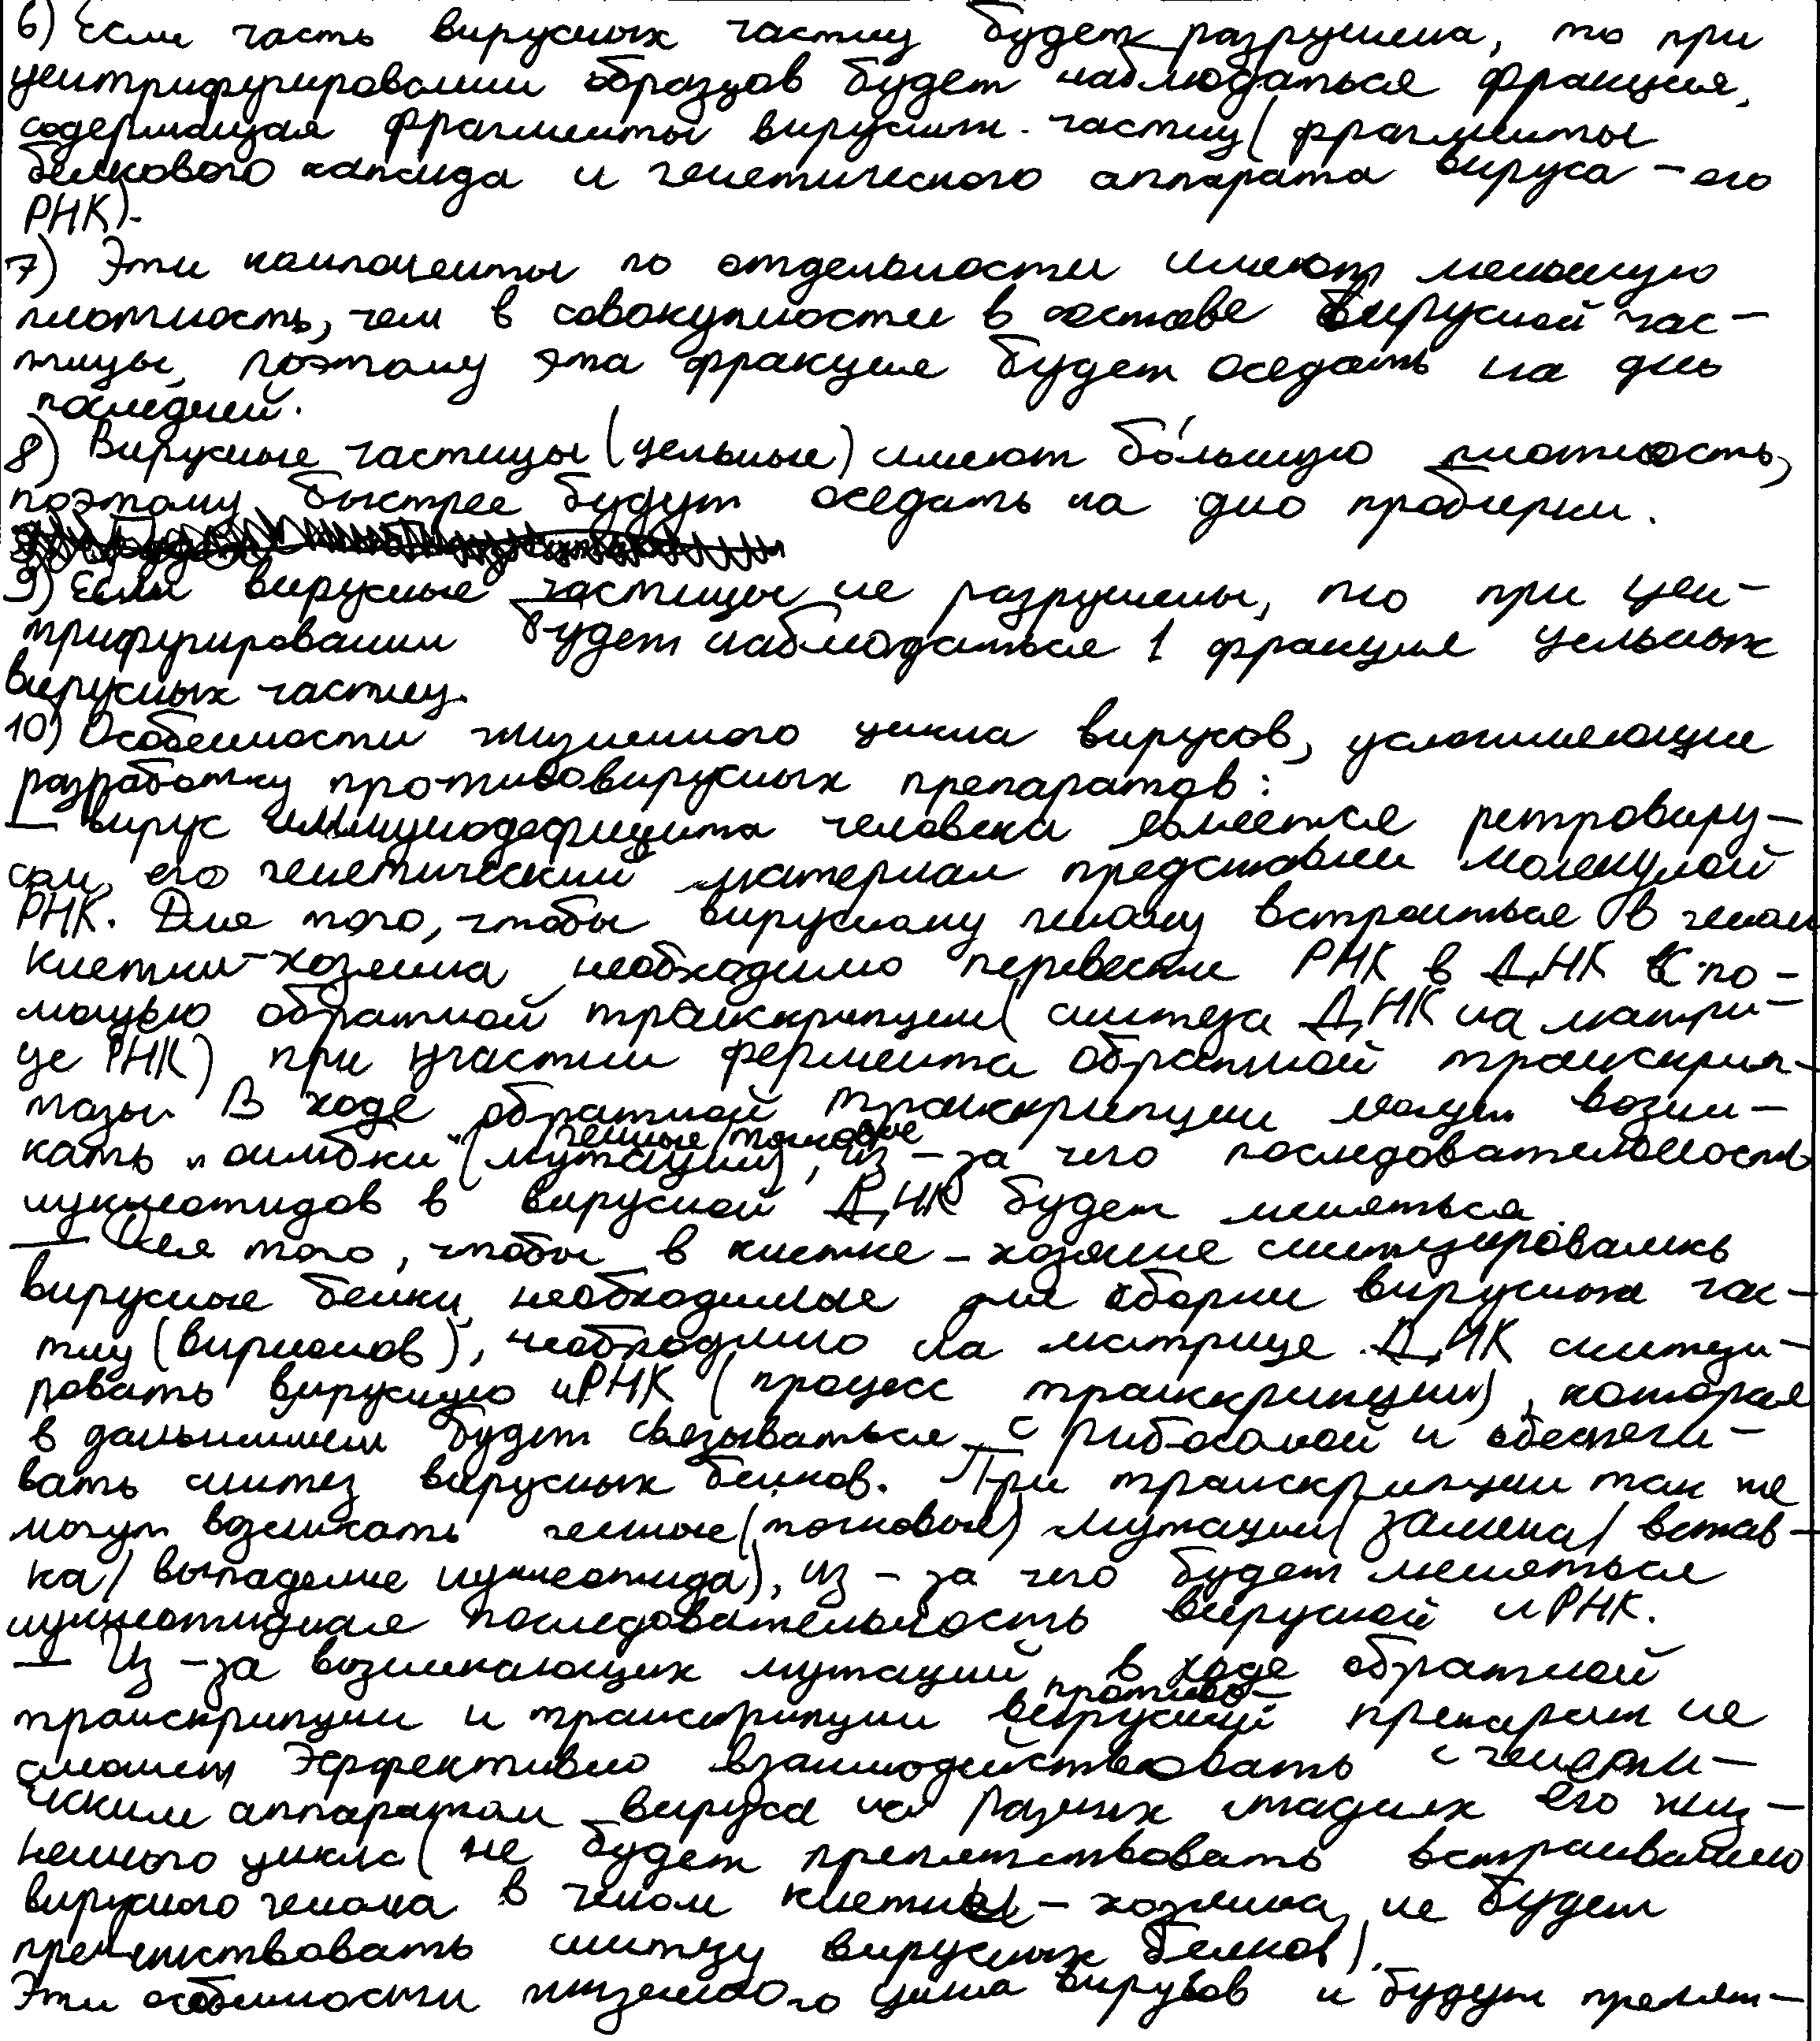 6) Если часть вирусных частиц будет разрушена, то при
центрифугировании образцов будет наблюдаться фракция,
содержащая фрагменты вирусных частиц (фрагменты
белкового капсида и генетического аппарата вируса – его
РНК).
7) Эти компоненты по отдельности имеют меньшую
плотность, чем в совокупности в составе вирусной час-
тицы, поэтому эта фракция будет оседать на дно
последней.
8) Вирусные частицы (цельные) имеют бо́льшую плотность,
поэтому быстрее будут оседать на дно пробирки.
9) Если вирусные частицы не разрушены, то при цен-
трифугировании будет наблюдаться 1 фракция цельных
вирусных частиц.
10) Особенности жизненного цикла вирусов, усложняющие
разработку противовирусных препаратов:
– вирус иммунодефицита человека является ретровиру-
сом, его генетический материал представлен молекулой
РНК. Для того, чтобы вирусному геному встроиться в геном
клетки-хозяина необходимо перевести РНК в ДНК с по-
мощью обратной транскрипции (синтеза ДНК на матри-
це РНК) при участии фермента обратной транскрип-
тазы. В ходе обратной транскрипции могут возни-
кать „ошибки“ (генные/точковые мутации), из-за чего последовательность
нуклеотидов в вирусной ДНК будет меняться.
– Для того, чтобы в клетке-хозяине синтезировались
вирусные белки, необходимые для сборки вирусных час-
тиц (вирионов), необходимо на матрице ДНК синтези-
ровать вирусную иРНК (процесс транскрипции), которая
в дальнейшем будет связываться с рибосомой и обеспечи-
вать синтез вирусных белков. При транскрипции так же
могут возникать генные (точковые) мутации (замена/встав-
ка/выпадение нуклеотида), из-за чего будет меняться
нуклеотидная последовательность вирусной иРНК.
– Из-за возникающих мутаций в ходе обратной
транскрипции и транскрипции противо-вирусный препарат не
сможет эффективно взаимодействовать с генети-
ческим аппаратом вируса на разных стадиях его жиз-
ненного цикла (не будет препятствовать встраиванию
вирусного генома в геном клетки-хозяина, не будет
препятствовать синтезу вирусных белков).
Эти особенности жизненного цикла вирусов и будут препят-